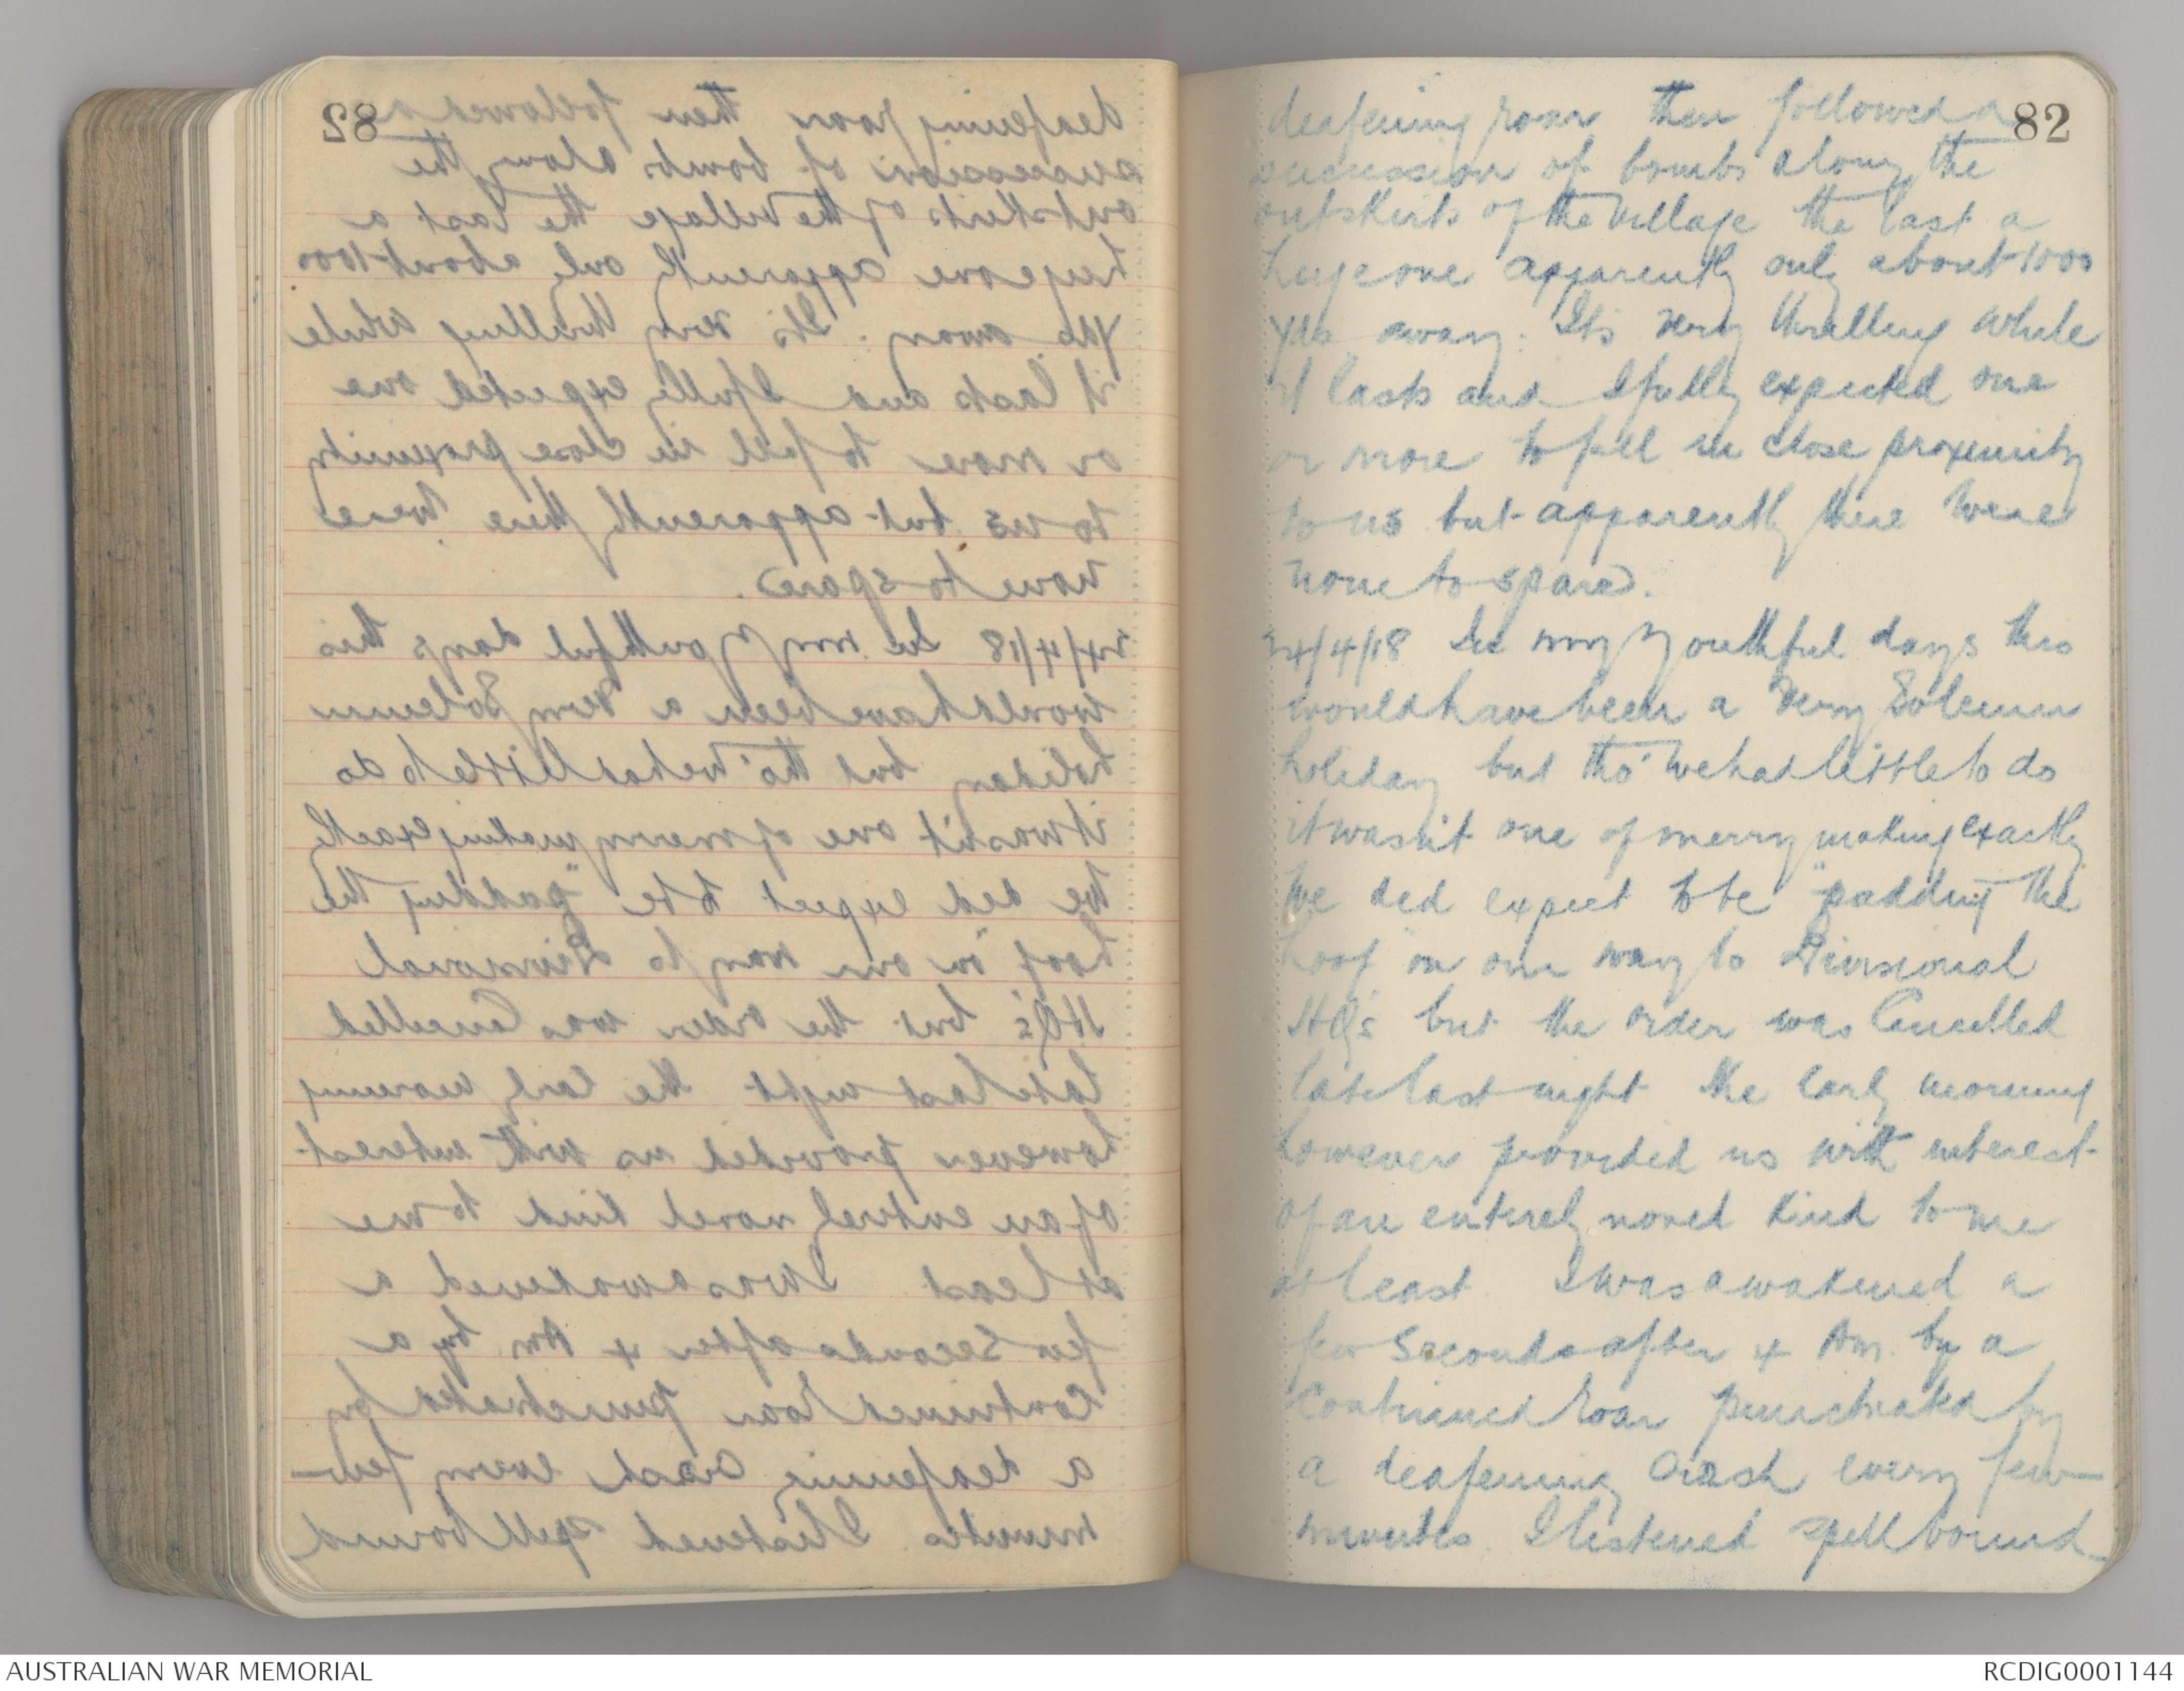 82
deafening roar then followed a
succession of bombs along the
outskirts of the village the last a
huge one apparently only about 1000
yds away. Its very thrilling while
it lasts and I fully expected one
or more to fall in close proximity
to us but apparently there were
none to spare.
24/4/18 In my youthful days this
would have been a very Solemn
holiday but tho' we had little to do
it wasn't one of merry making exactly
We did expect to be "padding the
hoof" on our way to Divisional
HQ's but the order was Cancelled
late last night the early morning
however provided us with interest
of an entirely novel kind to me
at least. I was awakened a
few Seconds after 4 Am. by a
Continued roar punctuated by
a deafening Crash every few
minutes. I listened spell bound
AUSTRALIAN WAR MEMORIAL
RCDIG0001144